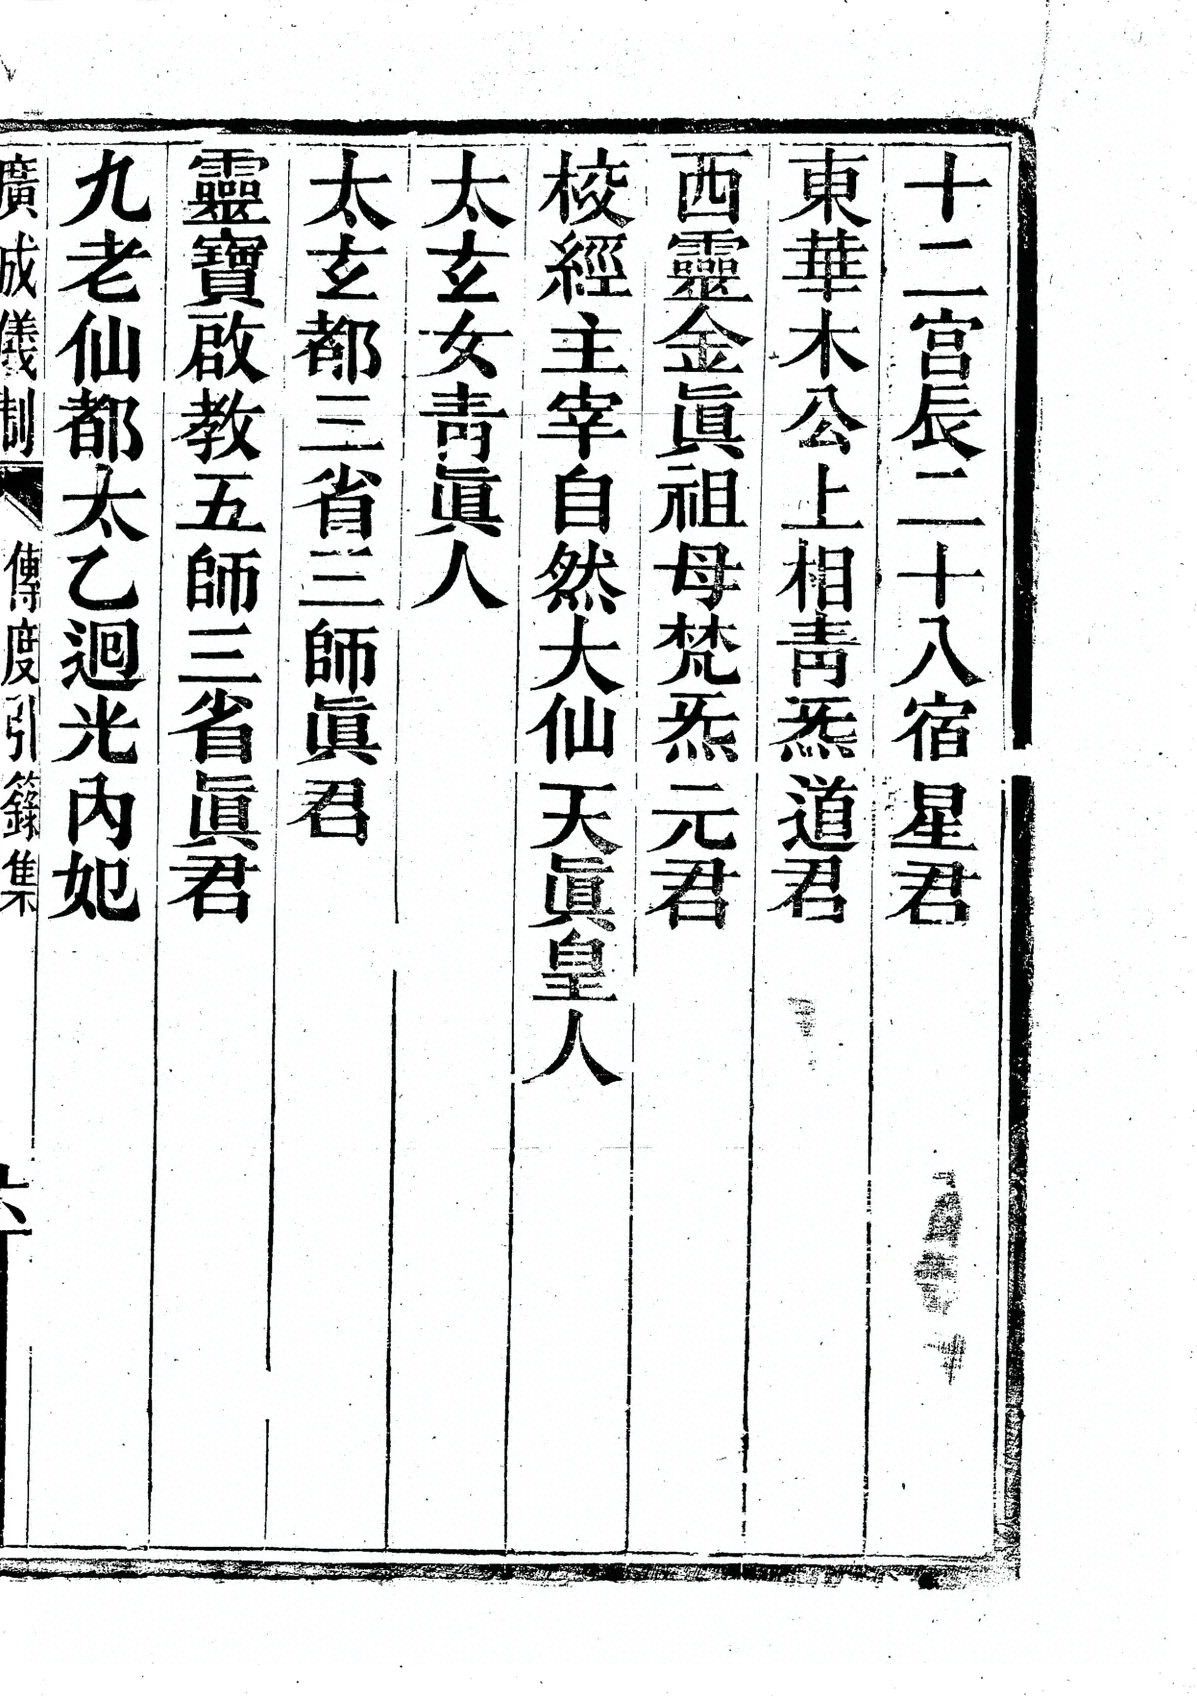 十二宮辰二十八宿星君
東華木公上相靑炁道君
西靈金眞祖母梵炁元君
校經主宰自然大仙天眞皇人
太玄女靑眞人
太玄都三省三師眞君
靈寶啟教五師三省眞君
九老仙都太乙迴光內妃
廣成儀制 傳度引籙集 六